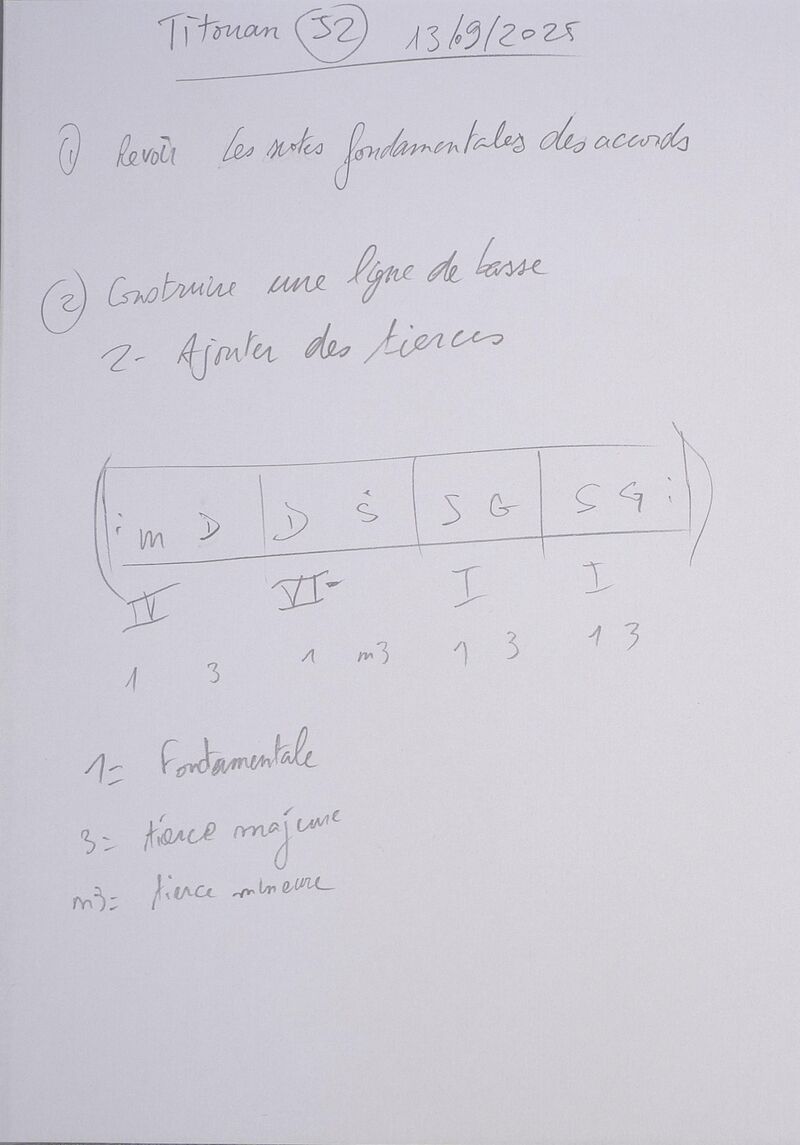 Titouan S2 13/09/2025
① Revoir les notes fondamentales des accords
② Construire une ligne de basse
2- Ajouter des tierces
: m D | D Ṡ | S G | S G :
IV VI- I I
1 3 1 m3 1 3 1 3
1= Fondamentale
3= tierce majeure
m3= tierce mineure